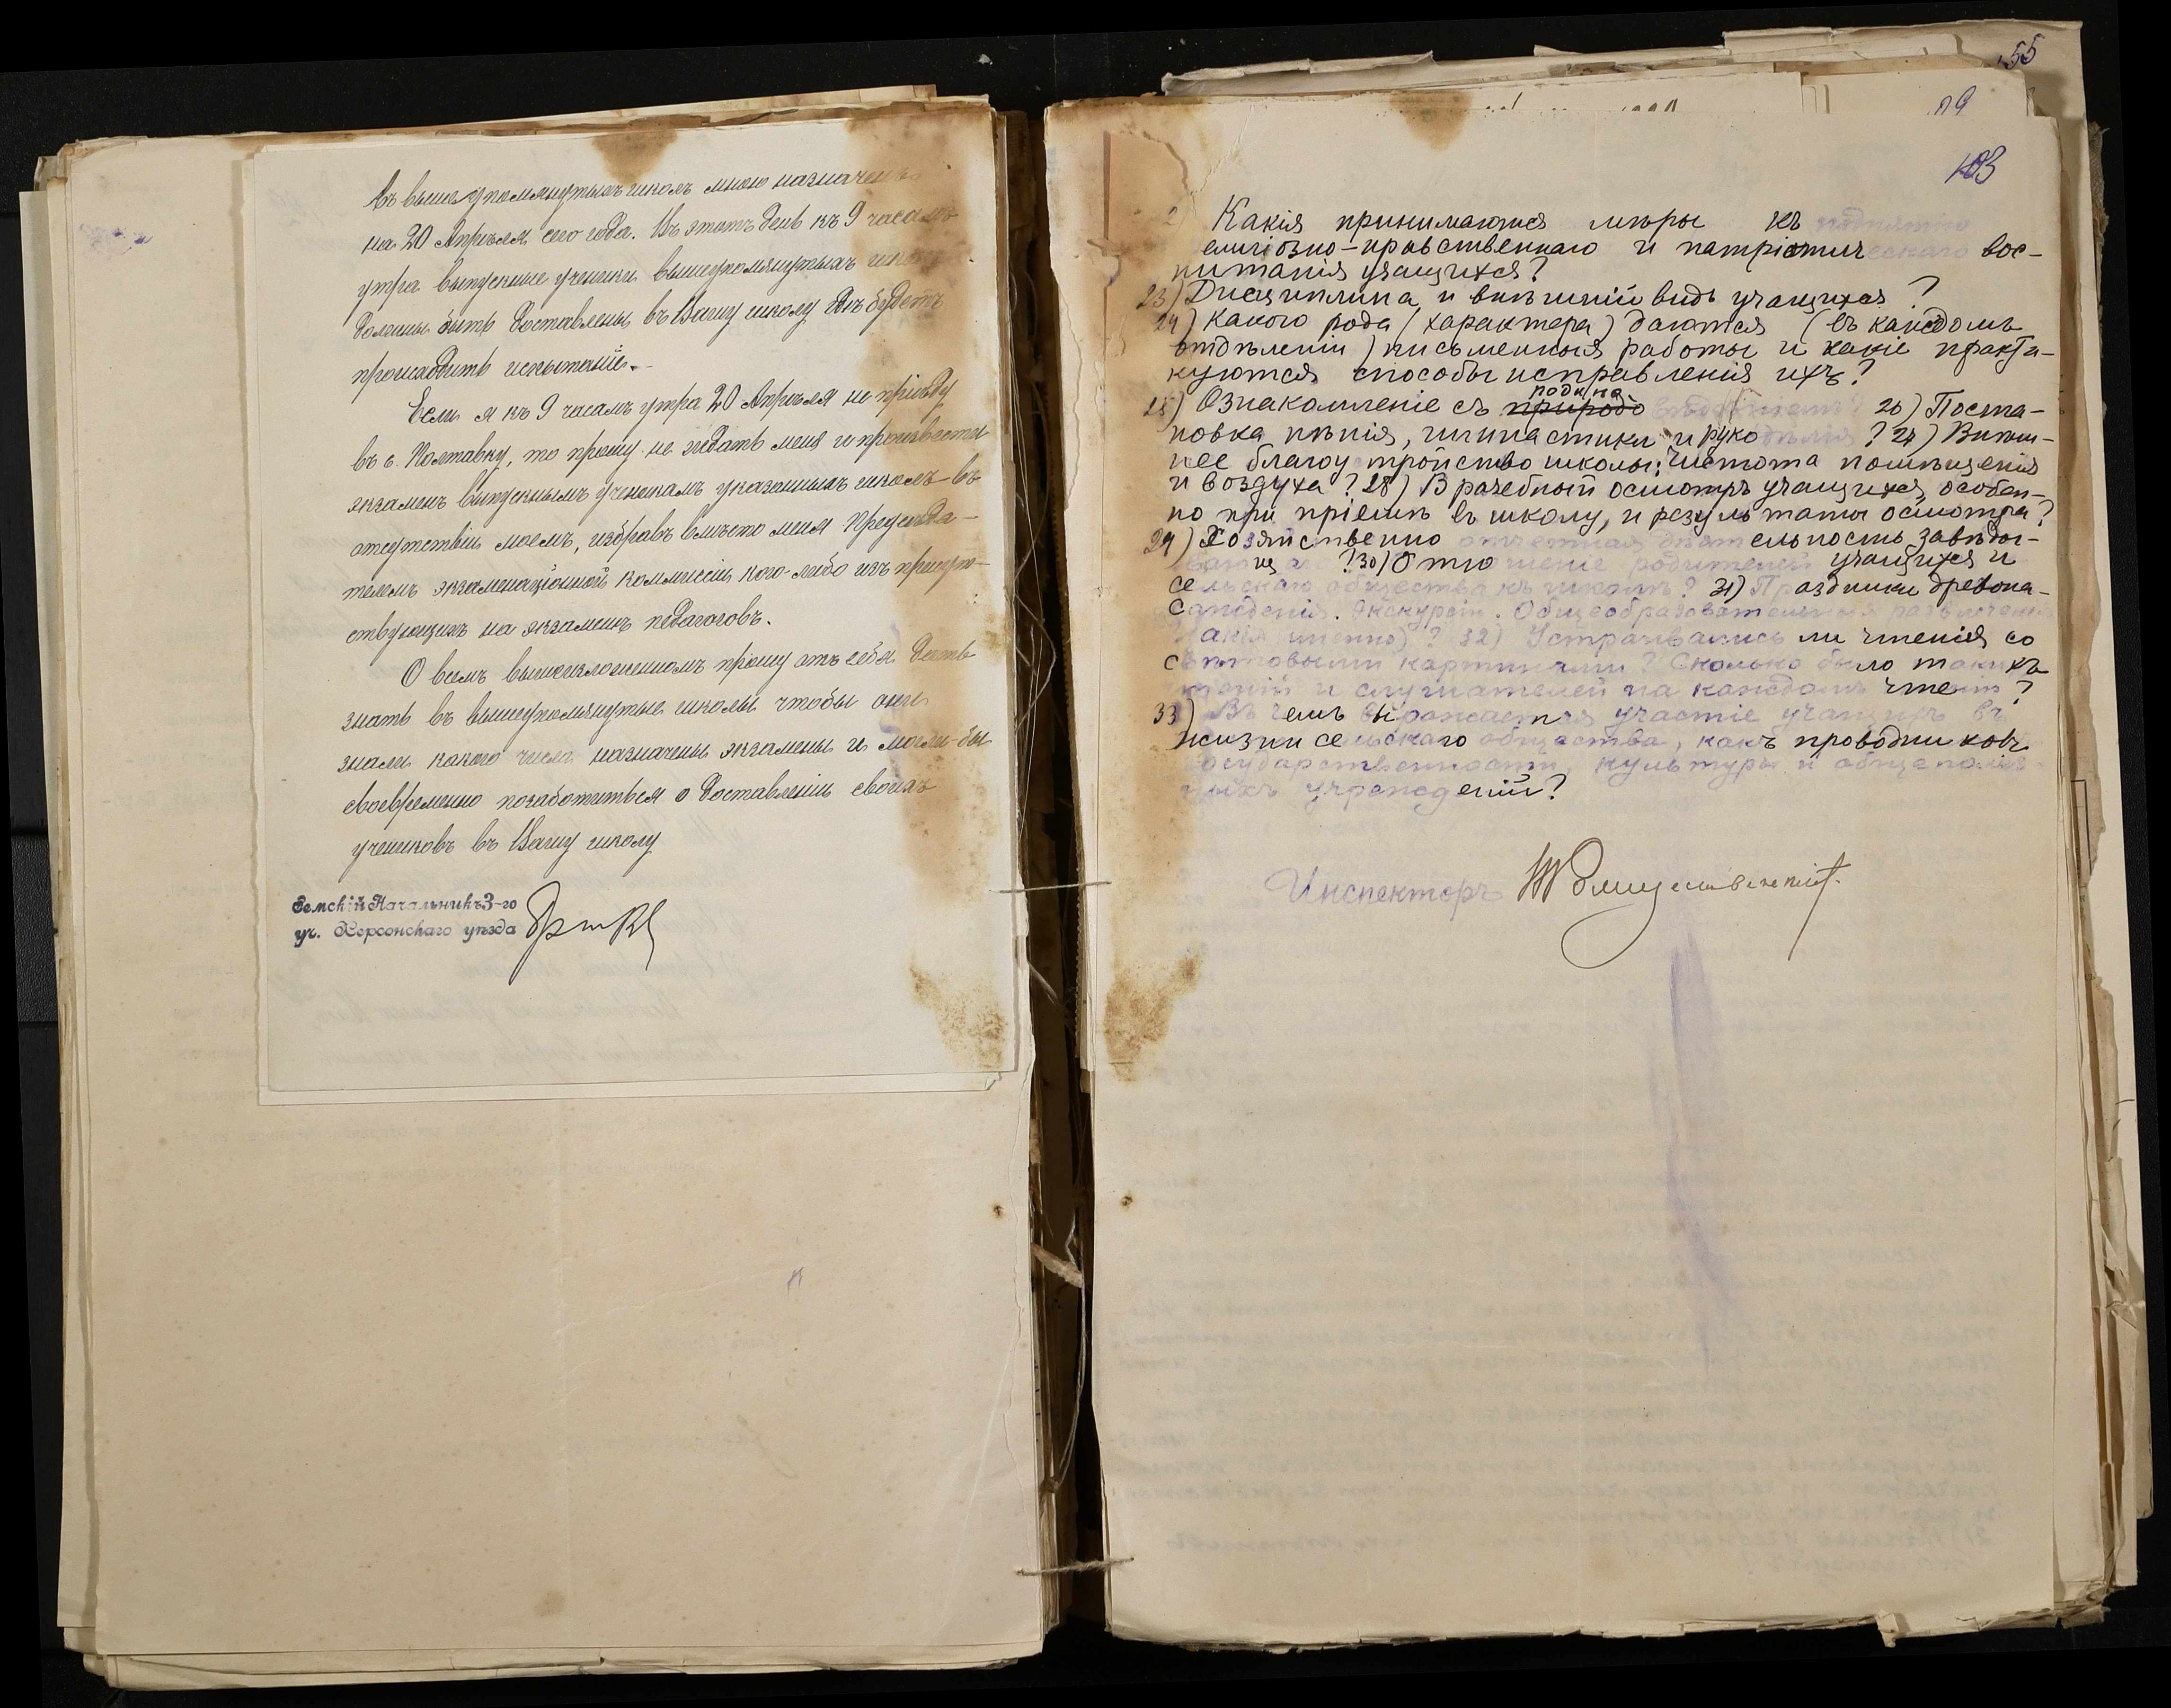 въ вышеупомянутыхъ школъ мною назначены
на 20 Апрѣля сего года. Въ этотъ день къ 9 часамъ
утра выпускные ученики вышеупомянутыхъ школъ
должны быть доставлены въ Вашу школу гдѣ будетъ
происходить испытаніе.
Если я къ 9 часамъ утра 20 Апрѣля не пріѣду
въ с. Полтавку, то прошу не ждать меня и произвести
экзаменъ выпускнымъ ученикамъ указанныхъ школъ въ
отсутствіи моемъ, избравъ вмѣсто меня Предсѣда-
телемъ экзаменаціонной коммиссіи кого-либо изъ присут-
ствующихъ на экзаменѣ педагоговъ.
О всемъ вышеизложенномъ прошу отъ себя дать
знать въ вышеупомянутые школы чтобы они
знали какого числа назначены экзамены и могли-бы
своевременно позаботиться о доставленіи своихъ
учениковъ въ Вашу школу
Земскій Начальникъ 3-го
уч. Херсонскаго уѣзда
55
89
103
2 Какія принимаются мѣры къ поднятію
елигіозно-нравственнаго и патріотическаго вос-
питанія учащихся?
23) Дисциплина и внѣшній видъ учащихся?
24) Какого рода (характера) даются (въ каждомъ
отдѣленіи) письменныя работы и какіе практи-
куются способы исправленія ихъ?
25) Ознакомленіе съ природо 26) Поста-
новка пѣнія, гимнастики и рукодѣлія? 27) Внѣш-
нее благоустройство школы: чистота помѣщенія
и воздуха? 28) Врачебный осмотръ учащихся, особен-
но при пріемѣ въ школу, и результаты осмотра?
29) Хозяйственно отчетная дѣятельность завѣды-
вающаго? 30) Отношеніе родителей учащихся и
сельскаго общества къ школѣ? 31) Праздники древона-
сажденія. Экскурсіи. Общеобразовательныя развлеченія
акія именно)? 32) Устраивались ли чтенія со
свѣтовыми картинами? Сколько было такихъ
чтеній и слушателей на каждомъ чтеніи?
33) Въ чемъ выражается участіе учащихъ въ
жизни сельскаго общества, какъ проводниковъ
государственности, культуры и общеполез-
ныхъ учрежденій?
Инспекторъ